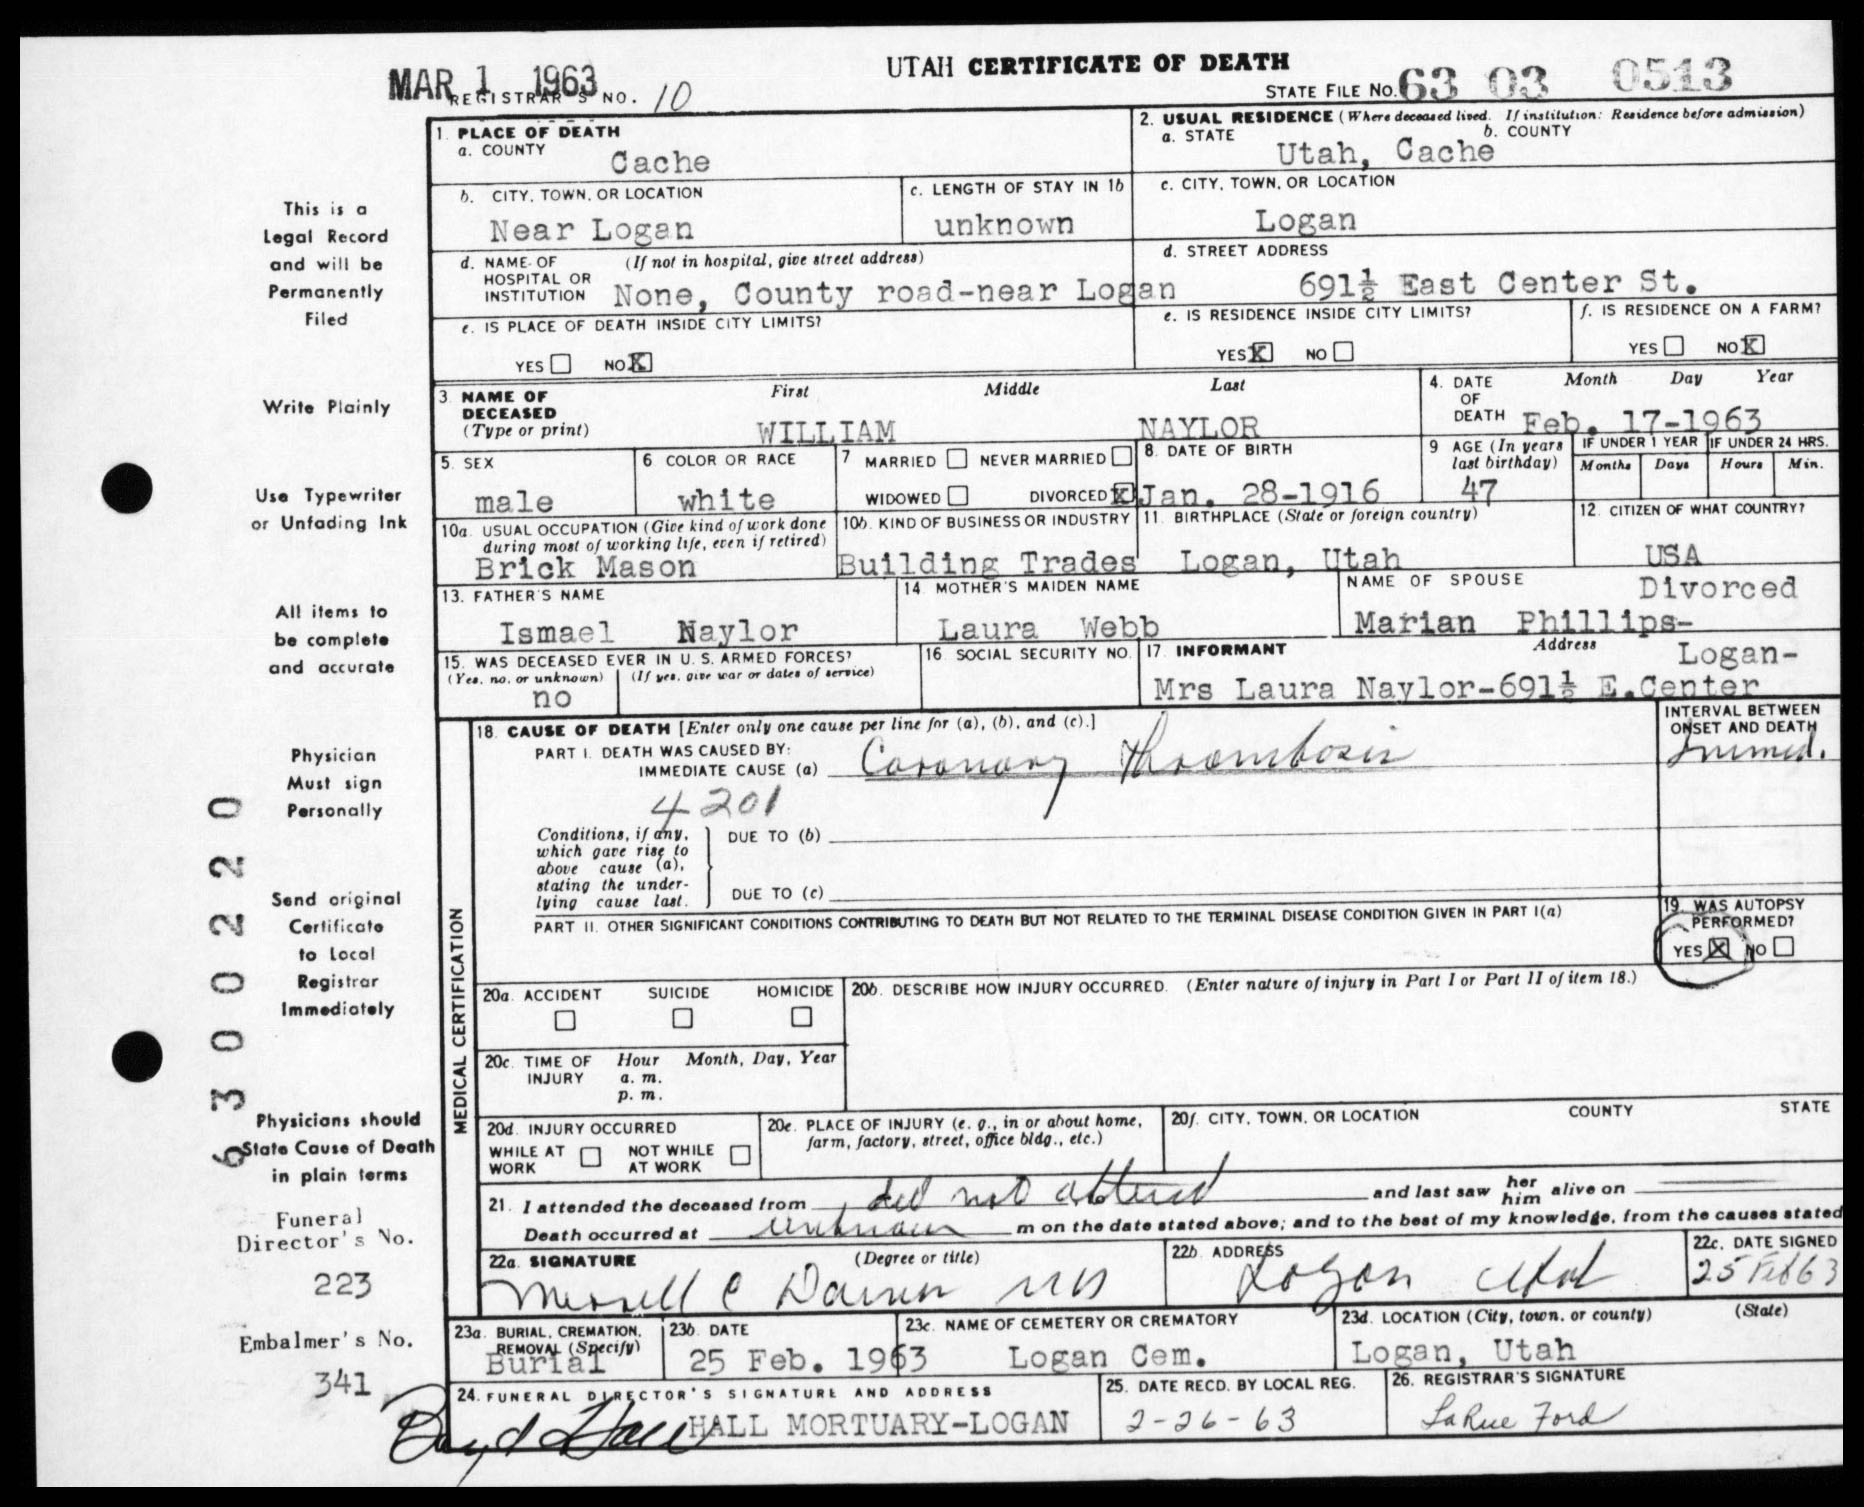 UTAH CERTIFICATE OF DEATH
MAR 1 1963
REGISTRAR'S NO. 10
STATE FILE NO. 63 03 0513
1. PLACE OF DEATH
a. COUNTY
Cache
2. USUAL RESIDENCE (Where deceased lived. If institution: Residence before admission)
a. STATE b. COUNTY
Utah, Cache
b. CITY, TOWN, OR LOCATION
Near Logan
c. LENGTH OF STAY IN 1b
unknown
c. CITY, TOWN, OR LOCATION
Logan
d. NAME OF HOSPITAL OR INSTITUTION (If not in hospital, give street address)
None, County road-near Logan
d. STREET ADDRESS
691½ East Center St.
e. IS PLACE OF DEATH INSIDE CITY LIMITS?
YES NO X
e. IS RESIDENCE INSIDE CITY LIMITS?
YES X NO
f. IS RESIDENCE ON A FARM?
YES NO X
3. NAME OF DECEASED (Type or print)
First Middle Last
WILLIAM NAYLOR
4. DATE OF DEATH
Month Day Year
Feb. 17-1963
5. SEX
male
6. COLOR OR RACE
white
7 MARRIED NEVER MARRIED
WIDOWED DIVORCED X
8. DATE OF BIRTH
Jan. 28-1916
9 AGE (In years last birthday)
47
IF UNDER 1 YEAR
Months Days
IF UNDER 24 HRS.
Hours Min.
10a. USUAL OCCUPATION (Give kind of work done during most of working life, even if retired)
Brick Mason
10b. KIND OF BUSINESS OR INDUSTRY
Building Trades
11. BIRTHPLACE (State or foreign country)
Logan, Utah
12. CITIZEN OF WHAT COUNTRY?
USA
13. FATHER'S NAME
Ismael Naylor
14. MOTHER'S MAIDEN NAME
Laura Webb
NAME OF SPOUSE
Divorced
Marian Phillips-
15. WAS DECEASED EVER IN U. S. ARMED FORCES?
(Yes, no, or unknown) (If yes, give war or dates of service)
no
16. SOCIAL SECURITY NO.
17. INFORMANT Address
Logan-
Mrs Laura Naylor-691½ E.Center
18. CAUSE OF DEATH [Enter only one cause per line for (a), (b), and (c).]
PART I. DEATH WAS CAUSED BY:
IMMEDIATE CAUSE (a) Coronary Thrombosis
INTERVAL BETWEEN ONSET AND DEATH
Immed.
4201
Conditions, if any, which gave rise to above cause (a), stating the under-lying cause last.
DUE TO (b)
DUE TO (c)
PART II. OTHER SIGNIFICANT CONDITIONS CONTRIBUTING TO DEATH BUT NOT RELATED TO THE TERMINAL DISEASE CONDITION GIVEN IN PART I(a)
19. WAS AUTOPSY PERFORMED?
YES X NO
MEDICAL CERTIFICATION
20a. ACCIDENT SUICIDE HOMICIDE
20b. DESCRIBE HOW INJURY OCCURRED. (Enter nature of injury in Part I or Part II of item 18.)
20c. TIME OF INJURY Hour Month, Day, Year
a. m.
p. m.
20d. INJURY OCCURRED
WHILE AT WORK NOT WHILE AT WORK
20e. PLACE OF INJURY (e. g., in or about home, farm, factory, street, office bldg., etc.)
20f. CITY, TOWN, OR LOCATION COUNTY STATE
21. I attended the deceased from did not attend and last saw her him alive on
Death occurred at unknown m on the date stated above; and to the best of my knowledge, from the causes stated
22a. SIGNATURE (Degree or title)
Merrell C MD
22b. ADDRESS
Logan Utah
22c. DATE SIGNED
25 Feb 63
23a. BURIAL, CREMATION, REMOVAL (Specify)
Burial
23b. DATE
25 Feb. 1963
23c. NAME OF CEMETERY OR CREMATORY
Logan Cem.
23d. LOCATION (City, town, or county) (State)
Logan, Utah
24. FUNERAL DIRECTOR'S SIGNATURE AND ADDRESS
Boyd Hall HALL MORTUARY-LOGAN
25. DATE RECD. BY LOCAL REG.
2-26-63
26. REGISTRAR'S SIGNATURE
LaRue Ford
This is a
Legal Record
and will be
Permanently
Filed
Write Plainly
Use Typewriter
or Unfading Ink
All items to
be complete
and accurate
Physician
Must sign
Personally
Send original
Certificate
to Local
Registrar
Immediately
Physicians should
State Cause of Death
in plain terms
Funeral
Director's No.
223
Embalmer's No.
341
6300220